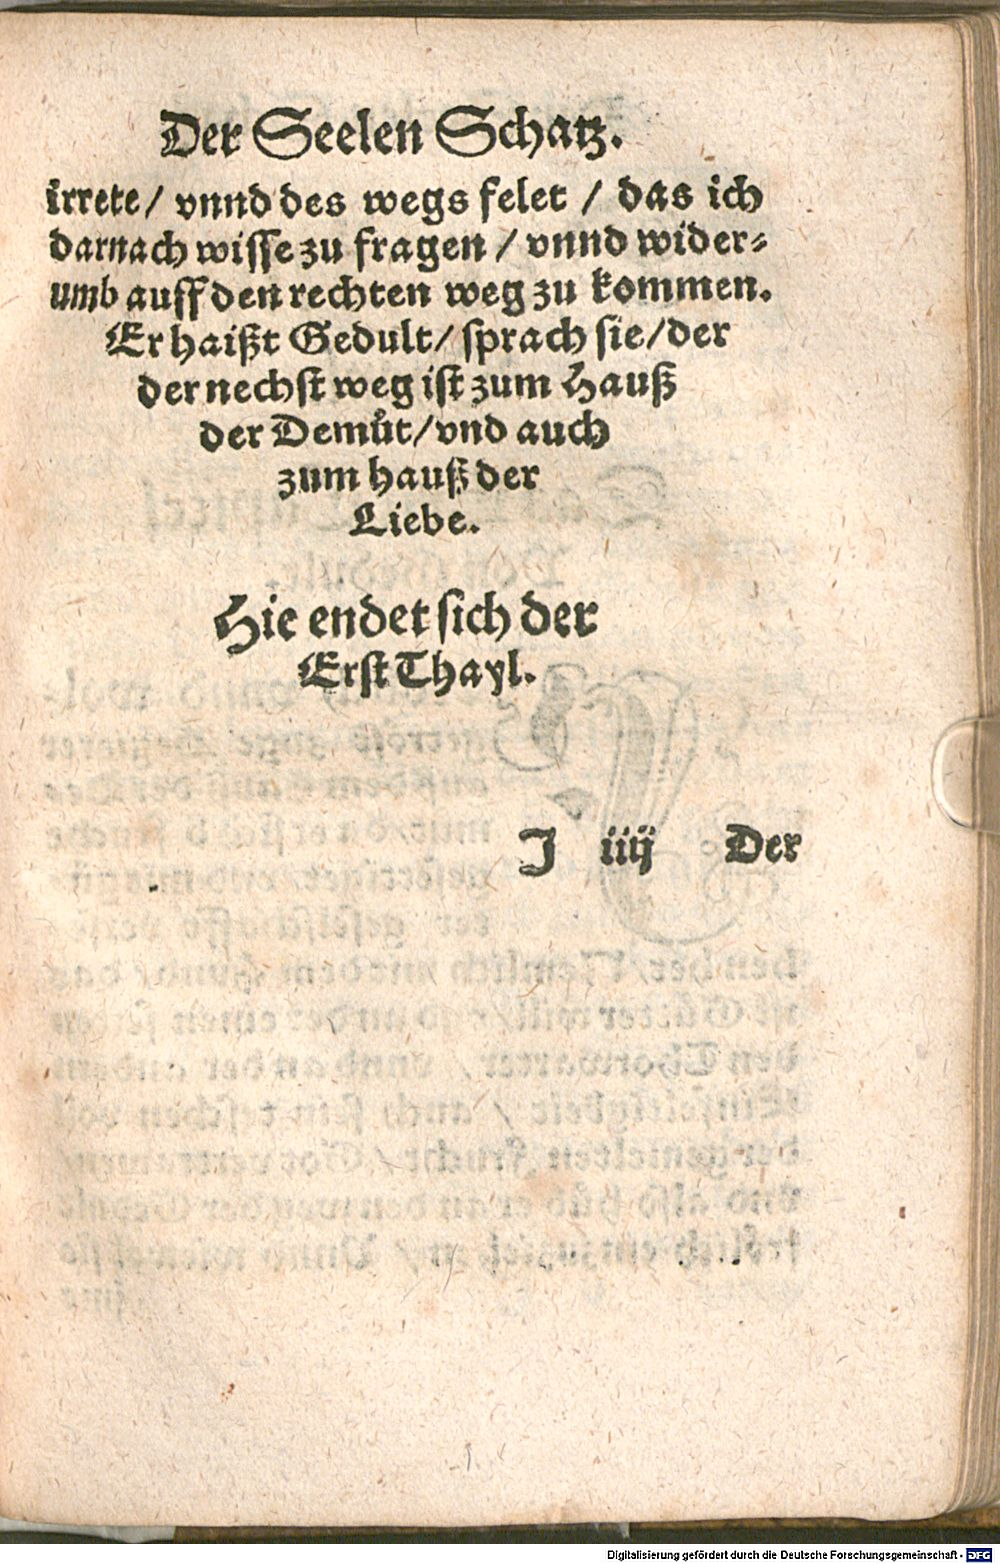 Der Seelen Schatz.
irrete / vnnd des wegs felet / das ich
darnach wisse zu fragen / vnnd wider-
umb auff den rechten weg zu kommen.
Er haißt Gedult / sprach sie / der
der nechst weg ist zum Hauß
der Demůt / vnd auch
zum hauß der
Liebe.
Hie endet sich der
Erst Thayl.
J iiij Der
Digitalisierung gefördert durch die Deutsche Forschungsgemeinschaft - DFG